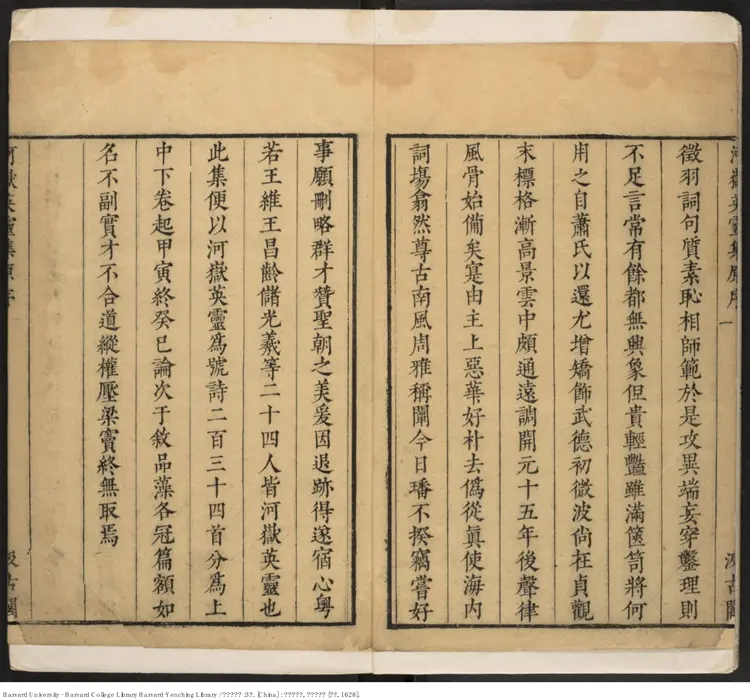 河嶽英靈集原序 一 汲古閣
徵羽詞句質素恥相師範於是攻異端妄穿鑿理則
不足言常有餘都無興象但貴輕豔雖滿篋笥將何
用之自蕭氏以還尤增矯飾武德初微波尙在貞觀
末標格漸高景雲中頗通遠調開元十五年後聲律
風骨始備矣寔由主上惡華好朴去僞從眞使海內
詞塲翕然尊古南風周雅稱闡今日璠不揆竊嘗好
事願刪略群才贊聖朝之美爰因退跡得遂宿心粤
若王維王昌齡儲光羲等二十四人皆河嶽英靈也
此集便以河嶽英靈爲號詩二百三十四首分爲上
中下卷起甲寅終癸巳論次于敘品藻各冠篇額如
名不副實才不合道縱權壓梁竇終無取焉
河嶽英靈集原序 汲古閣
Harvard University - Harvard College Library Harvard-Yenching Library / ????? :3?. [China] : ?????, ????? [??, 1628].